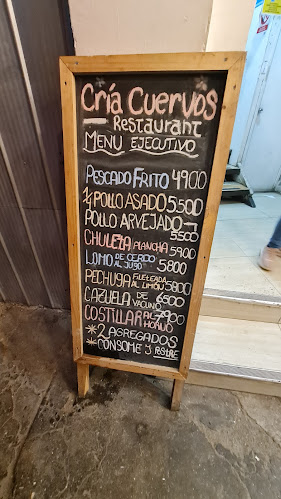 Cría Cuervos
Restaurant
MENU EJECUTIVO
PESCADO FRITO 4900
1/4 POLLO ASADO 5.500
POLLO ARVEJADO
5500
CHULETA PLANCHA 5900
LOMO DE CERDO AL JUGO 5800
PECHUGA FILETEADA AL LIMÓN 5800
CAZUELA DE VACUNO 6500
COSTILLAR AL HORNO 7900
* 2 AGREGADOS
* CONSOME Y POSTRE